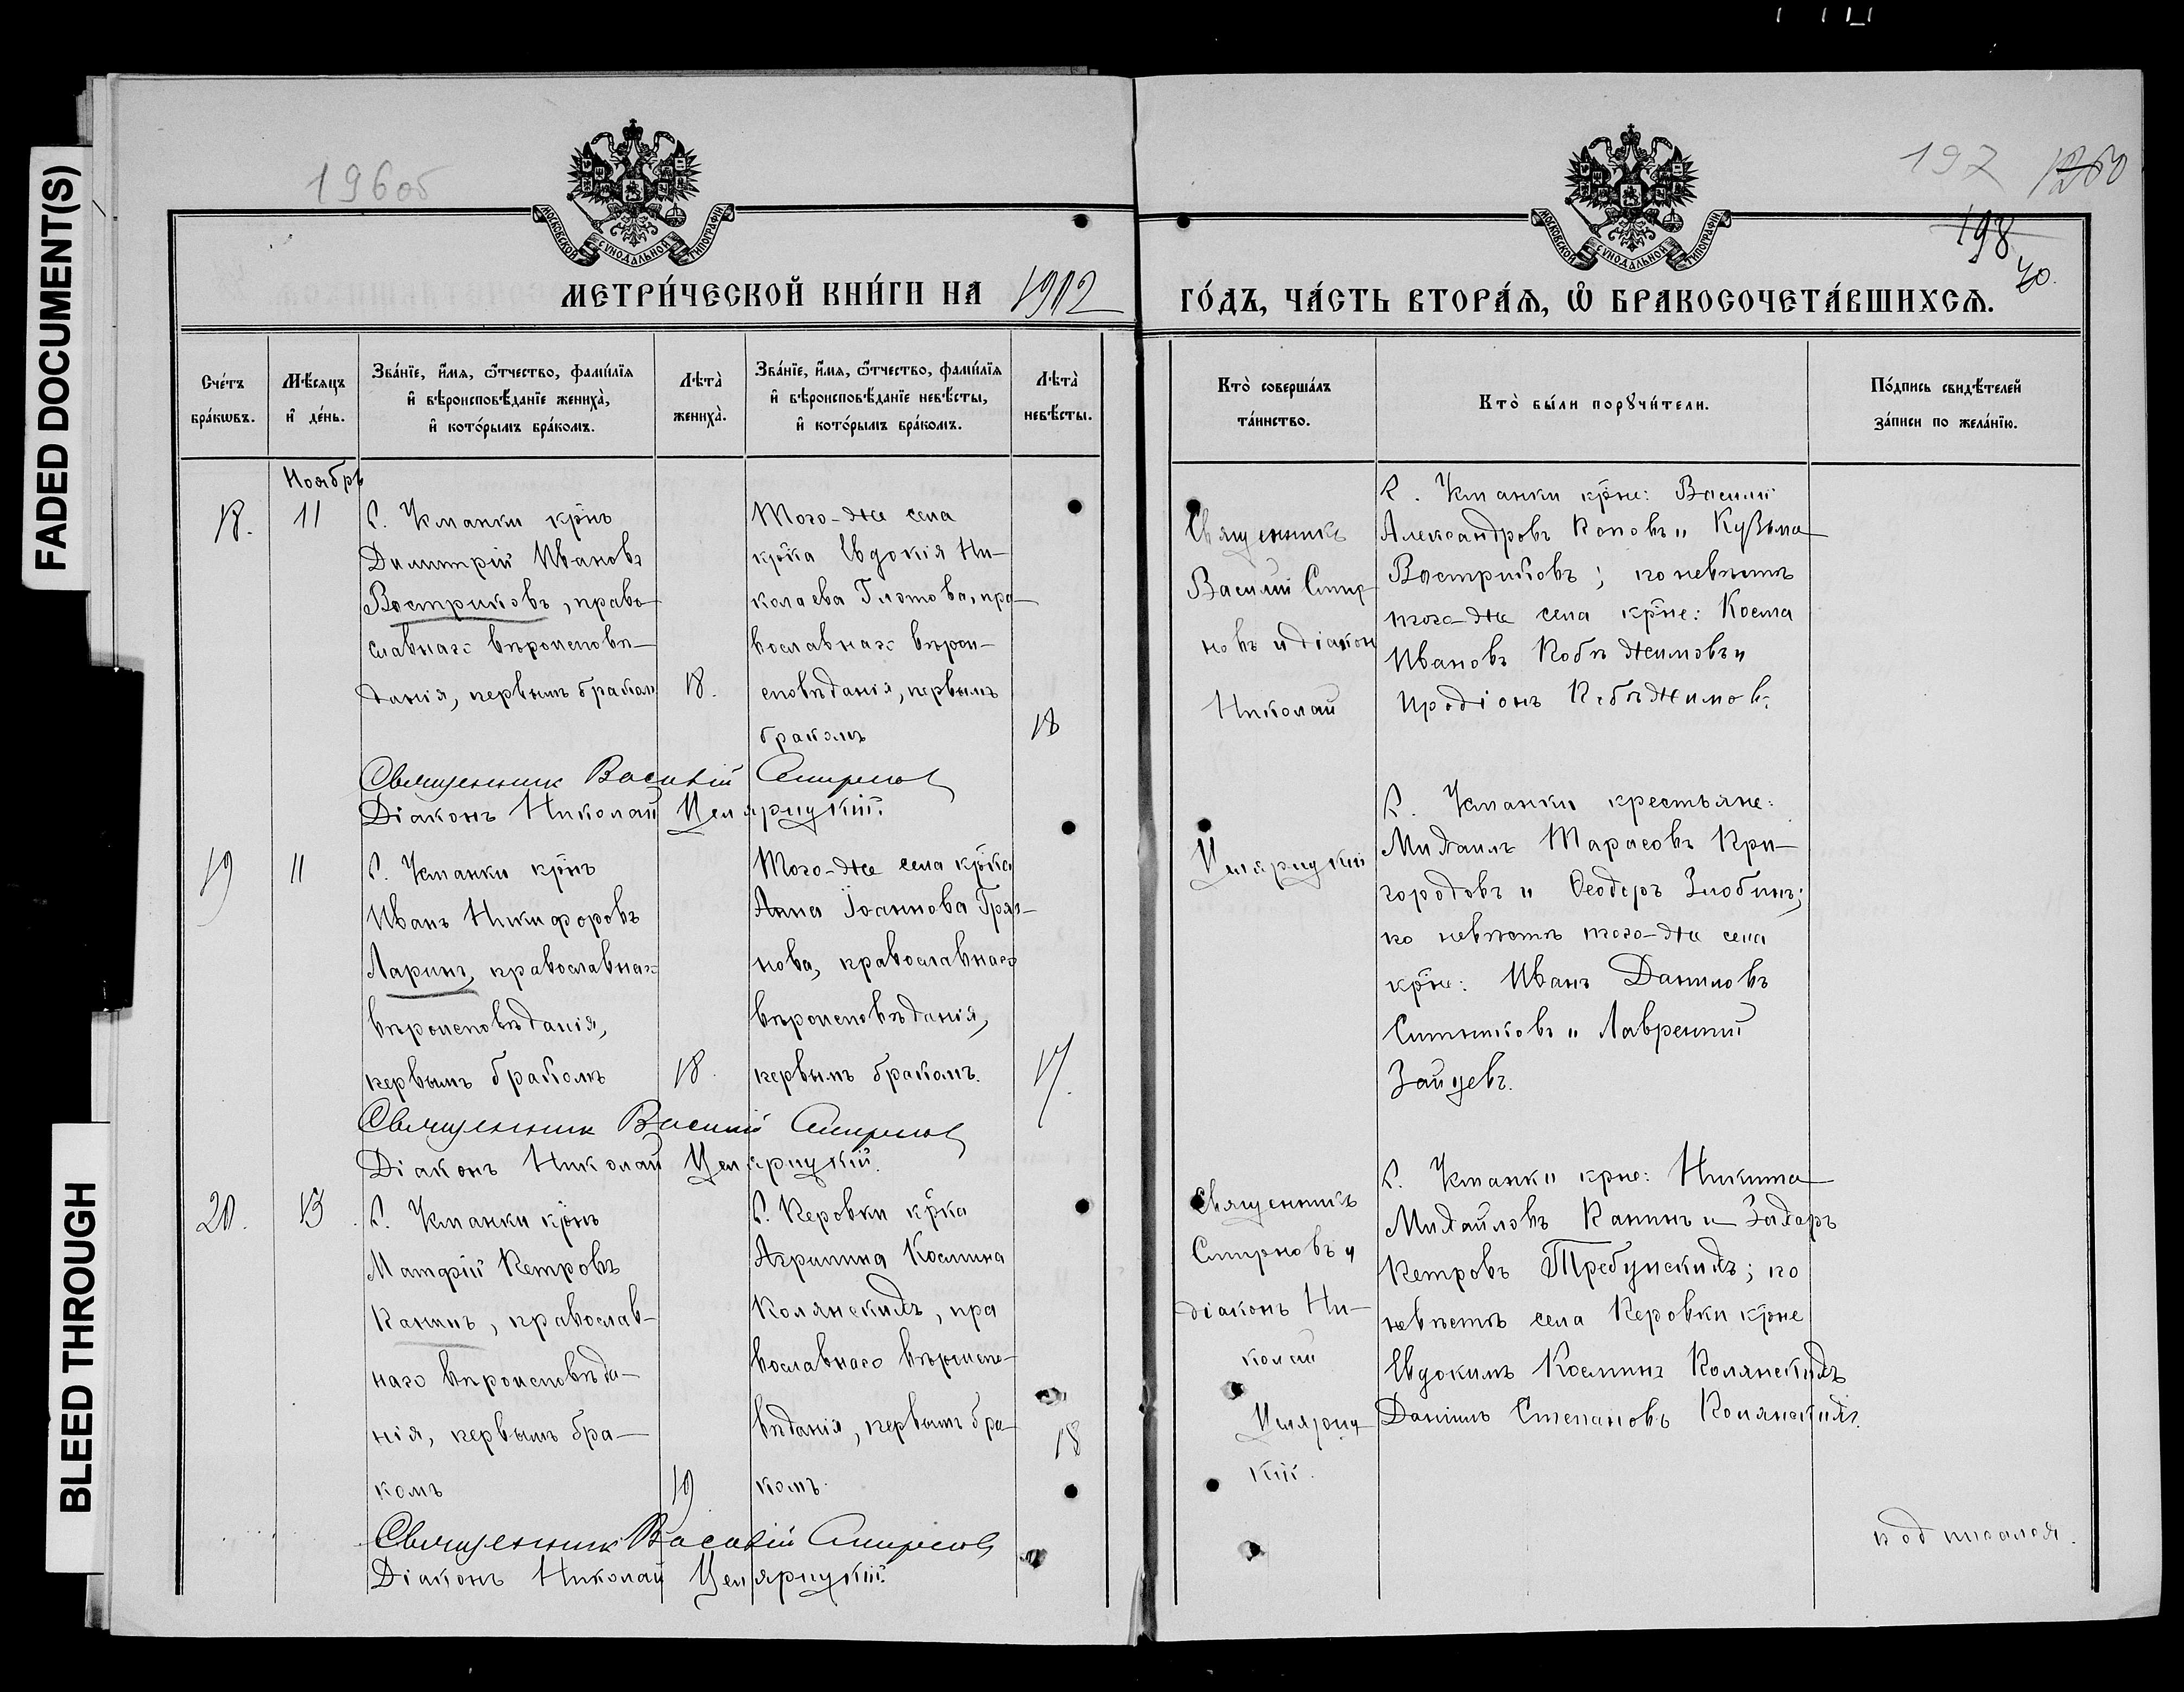 FADED DOCUMENT(S)
BLEED THROUGH
196об
197
198
40.
МОСКОВСКОЙ СѴНОДАЛЬНОЙ ТИПОГРАФІИ
МОСКОВСКОЙ СѴНОДАЛЬНОЙ ТИПОГРАФІИ
МЕТРИ́ЧЕСКОЙ КНИ́ГИ НА 1912
ГО́ДЪ, ЧА́СТЬ ВТОРА́Ѧ, Ѡ БРАКОСОЧЕТА́ВШИХСѦ.
Сче́тъ
бра́кѡвъ.
Мѣ́сяцъ
и҆ де́нь.
Зва́нїе, и҆́мя, ѻ҆́тчество, фами́лїя
и҆ вѣроисповѣ́данїе жениха̀,
и҆ кото́рымъ бра́комъ.
Лѣта̀
жениха̀.
Зва́нїе, и҆́мя, ѻ҆́тчество, фами́лїя
и҆ вѣроисповѣ́данїе невѣ́сты,
и҆ кото́рымъ бра́комъ.
Лѣта̀
невѣ́сты.
Кто̀ соверша́лъ
та́инство.
Кто̀ бы́ли порꙋчи́тели.
По́дпись свидѣ́телей
за́писи по жела́нїю.
Ноябрь
18.
11
С. Уманки крнъ
Димитрій Ивановъ
Востриковъ, право-
славнаго вѣроисповѣ-
данія, первымъ бракомъ
18.
Того-же села
крка Евдокія Ни-
колаева Глотова, пра-
вославнаго вѣрои-
сповѣданія, первымъ
бракомъ
18
Священникъ
Василій Смир-
новъ и діаконъ
Николай
С. Уманки крне: Василій
Александровъ Поповъ и Кузьма
Востриковъ; по невѣстѣ
того-же села крне: Косма
Ивановъ Кобѣжимовъ и
Иродіонъ Кобѣжимовъ.
Священник Василій Смирнов
Діаконъ Николай Целярицкій.
19
11
С. Уманки крнъ
Иванъ Никифоровъ
Ларинъ, православнаго
вѣроисповѣданія,
первымъ бракомъ
18.
Того-же села крка
Анна Іоаннова Гряз-
нова, православнаго
вѣроисповѣданія,
первымъ бракомъ.
17.
Целярицкій
С. Уманки крестьяне:
Михаилъ Тарасовъ При-
городовъ и Ѳеодоръ Злобинъ;
по невѣстѣ того-же села
крне: Иванъ Даниловъ
Ситниковъ и Лаврентій
Зайцевъ.
Священник Василій Смирнов
Діаконъ Николай Целярицкій.
20.
13.
С. Уманки крнъ
Матфій Петровъ
Панинъ, православ-
наго вѣроисповѣда-
нія, первымъ бра-
комъ
19
С. Перовки крка
Агрипина Космина
Полянскихъ, пра
вославнаго вѣроиспо-
вѣданія, первымъ бра-
комъ.
18
Священникъ
Смирновъ и
діаконъ Ни-
колай
Целяриц-
кій.
С. Уманки крне: Никита
Михайловъ Панинъ и Захаръ
Петровъ Требунскихъ; по
невѣстѣ села Перовки крне
Евдокимъ Косминъ Полянскихъ
Даніилъ Степановъ Полянскихъ.
Священник Василій Смирнов
Діаконъ Николай Целярицкій.
подписался.